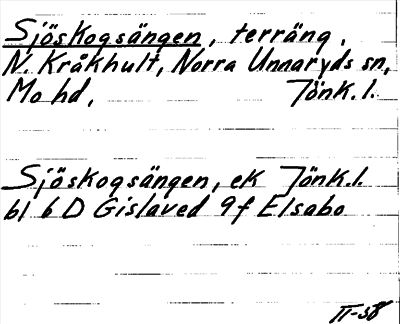 Sjöskogsängen, terräng,
N. Kråkhult, Norra Unnaryds sn,
Mo hd, Jönk. l.
Sjöskogsängen, ek Jönk. l.
bl 6 D Gislaved 9f Elsabo
II-58